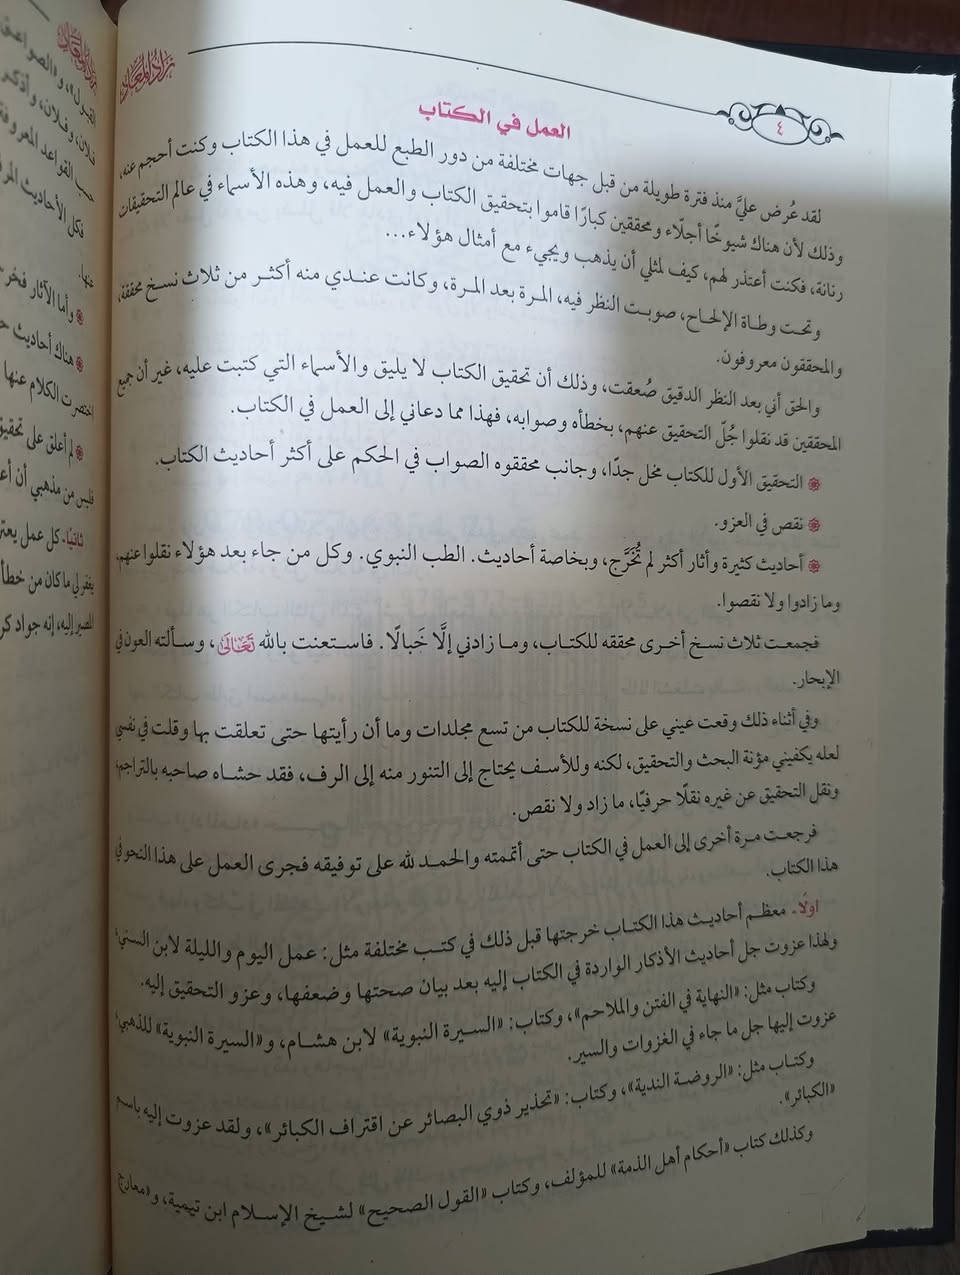 زاد المعاد
٤
العمل في الكتاب
لقد عُرض عليَّ منذ فترة طويلة من قبل جهات مختلفة من دور الطبع للعمل في هذا الكتاب وكنت أحجم عنه،
وذلك لأن هناك شيوخًا أجلّاء ومحققين كبارًا قاموا بتحقيق الكتاب والعمل فيه، وهذه الأسماء في عالم التحقيقات
رنانة، فكنت أعتذر لهم، كيف لمثلي أن يذهب ويجيء مع أمثال هؤلاء...
وتحت وطاة الإلحاح، صوبت النظر فيه، المرة بعد المرة، وكانت عندي منه أكثر من ثلاث نسخ محققة،
والمحققون معروفون.
والحق أني بعد النظر الدقيق صُعقت، وذلك أن تحقيق الكتاب لا يليق والأسماء التي كتبت عليه، غير أن جميع
المحققين قد نقلوا جُلّ التحقيق عنهم، بخطأه وصوابه، فهذا مما دعاني إلى العمل في الكتاب.
التحقيق الأول للكتاب مخل جدًا، وجانب محققوه الصواب في الحكم على أكثر أحاديث الكتاب.
نقص في العزو.
أحاديث كثيرة وأثار أكثر لم تُخَرَّج، وبخاصة أحاديث. الطب النبوي. وكل من جاء بعد هؤلاء نقلوا عنهم،
وما زادوا ولا نقصوا.
فجمعت ثلاث نسخ أخرى محققه للكتاب، وما زادني إلَّا خَبالًا. فاستعنت بالله تَعَالَىٰ، وسألته العون في
الإبحار.
وفي أثناء ذلك وقعت عيني على نسخة للكتاب من تسع مجلدات وما أن رأيتها حتى تعلقت بها وقلت في نفسي
لعله يكفيني مؤنة البحث والتحقيق، لكنه وللأسف يحتاج إلى التنور منه إلى الرف، فقد حشاه صاحبه بالتراجم،
ونقل التحقيق عن غيره نقلًا حرفيًا، ما زاد ولا نقص.
فرجعت مرة أخرى إلى العمل في الكتاب حتى أتممته والحمد لله على توفيقه فجرى العمل على هذا النحو في
هذا الكتاب.
اولًا- معظم أحاديث هذا الكتاب خرجتها قبل ذلك في كتب مختلفة مثل: عمل اليوم والليلة لابن السني؛
ولهذا عزوت جل أحاديث الأذكار الواردة في الكتاب إليه بعد بيان صحتها وضعفها، وعزو التحقيق إليه.
وكتاب مثل: «النهاية في الفتن والملاحم»، وكتاب: «السيرة النبوية» لابن هشام، و«السيرة النبوية» للذهبي،
عزوت إليها جل ما جاء في الغزوات والسير.
وكتاب مثل: «الروضة الندية»، وكتاب: «تحذير ذوي البصائر عن اقتراف الكبائر»، ولقد عزوت إليه باسم
«الكبائر».
وكذلك كتاب «أحكام أهل الذمة» للمؤلف، وكتاب «القول الصحيح» لشيخ الإسلام ابن تيمية، و«معارج